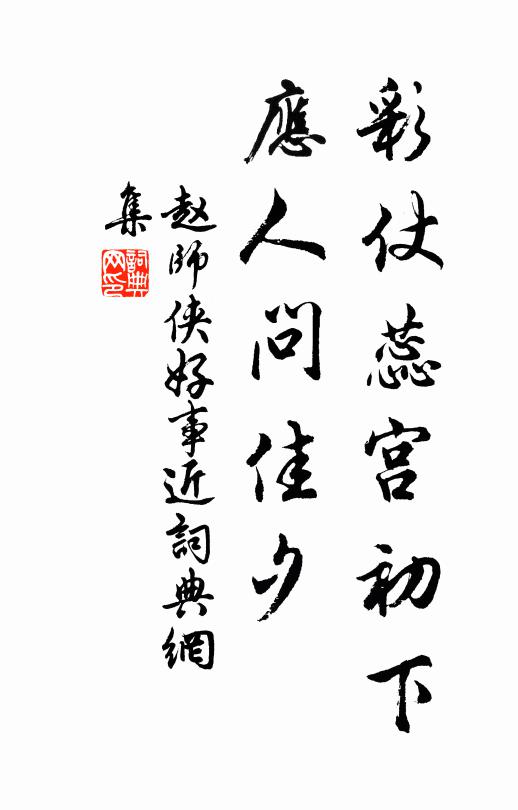 彩仗蕊宫初下
應人問佳夕
赵師侠好事近詞典網
集
詞典网印